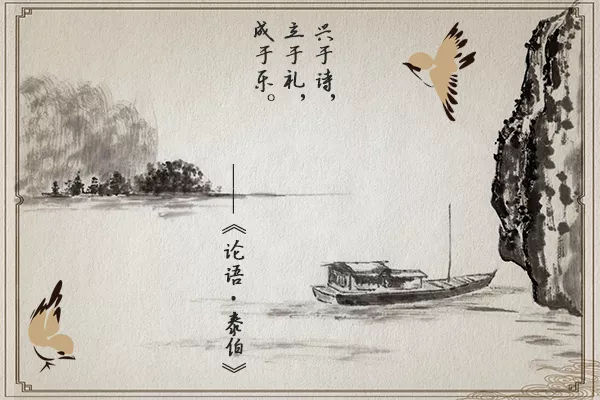 兴于诗，
立于礼，
成于乐。
——《论语·泰伯》